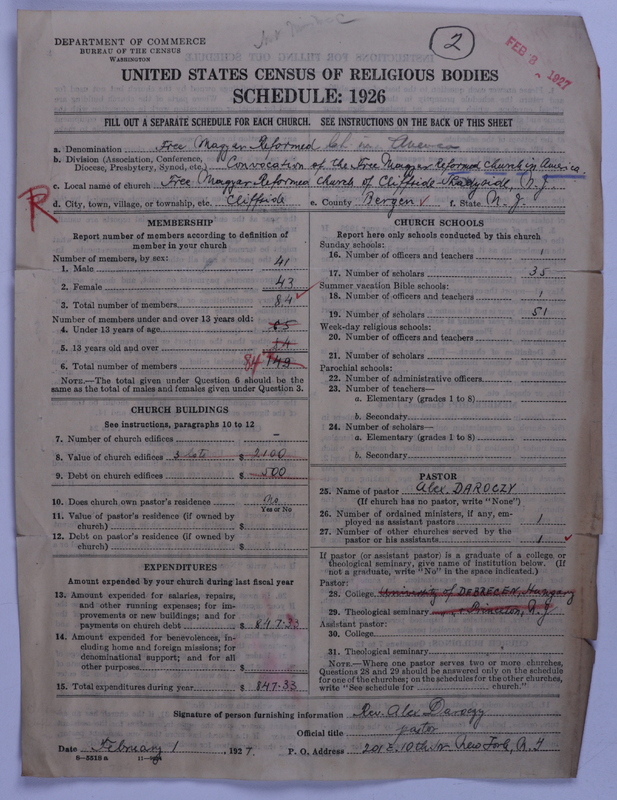 DEPARTMENT OF COMMERCE
BUREAU OF THE CENSUS
WASHINGTON
2
FEB 8 1927
UNITED STATES CENSUS OF RELIGIOUS BODIES
SCHEDULE: 1926
FILL OUT A SEPARATE SCHEDULE FOR EACH CHURCH. SEE INSTRUCTIONS ON THE BACK OF THIS SHEET
a. Denomination Free Magyar Reformed Ch. in America
b. Division (Association, Conference, Diocese, Presbytery, Synod, etc.) Convocation of the Free Magyar Reformed Church in America.
c. Local name of church Free Magyar Reformed Church of Cliffside Shadyside, N. J.
R
d. City, town, village, or township, etc. Cliffside e. County Bergen f. State N. J.
MEMBERSHIP
Report number of members according to definition of
member in your church
Number of members, by sex:
1. Male 41
2. Female 43
3. Total number of members 84
Number of members under and over 13 years old:
4. Under 13 years of age 65
5. 13 years old and over
6. Total number of members 84 149
NOTE.—The total given under Question 6 should be the
same as the total of males and females given under Question 3.
CHURCH BUILDINGS
See instructions, paragraphs 10 to 12
7. Number of church edifices –
8. Value of church edifices 3 lots $ 2100
9. Debt on church edifices $ 500
10. Does church own pastor's residence no
Yes or No
11. Value of pastor's residence (if owned by
church) $
12. Debt on pastor's residence (if owned by
church) $
EXPENDITURES
Amount expended by your church during last fiscal year
13. Amount expended for salaries, repairs,
and other running expenses; for im-
provements or new buildings; and for
payments on church debt $ 847.33
14. Amount expended for benevolences, in-
cluding home and foreign missions; for
denominational support; and for all
other purposes $
15. Total expenditures during year $ 847.33
CHURCH SCHOOLS
Report here only schools conducted by this church
Sunday schools:
16. Number of officers and teachers 1
17. Number of scholars 35
Summer vacation Bible schools:
18. Number of officers and teachers 1
19. Number of scholars 51
Week-day religious schools:
20. Number of officers and teachers
21. Number of scholars
Parochial schools:
22. Number of administrative officers
23. Number of teachers—
a. Elementary (grades 1 to 8)
b. Secondary
24. Number of scholars—
a. Elementary (grades 1 to 8)
b. Secondary
PASTOR
25. Name of pastor Alex. DAROCZY
(If church has no pastor, write "None")
26. Number of ordained ministers, if any, em-
ployed as assistant pastors 1
27. Number of other churches served by the
pastor or his assistants 1
If pastor (or assistant pastor) is a graduate of a college or
theological seminary, give name of institution below. (If
not a graduate, write "No" in the space indicated.)
Pastor:
28. College University of DEBRECEN, Hungary
29. Theological seminary Princeton, N. J.
Assistant pastor:
30. College
31. Theological seminary
NOTE.—Where one pastor serves two or more churches,
Questions 28 and 29 should be answered only on the schedule
for one of the churches; on the schedules for the other churches,
write "See schedule for church."
Signature of person furnishing information Rev. Alex Daroczy
Official title pastor
Date February 1 1927. P. O. Address 201 E. 10th str. New York, N. Y.
8—5518 a